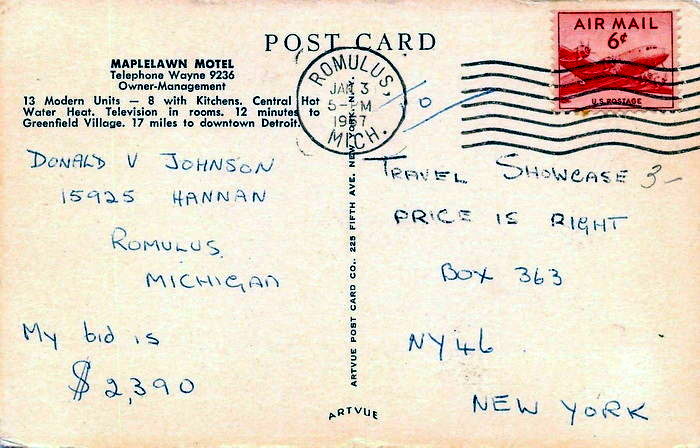 POST CARD
MAPLELAWN MOTEL
Telephone Wayne 9236
Owner-Management
13 Modern Units — 8 with Kitchens. Central Hot
Water Heat. Television in rooms. 12 minutes to
Greenfield Village. 17 miles to downtown Detroit.
ROMULUS,
JAN 3
5-PM
1957
MICH.
AIR MAIL
6¢
U.S. POSTAGE
DONALD V JOHNSON
15925 HANNAN
ROMULUS
MICHIGAN
My bid is
$2,390
ARTVUE POST CARD CO., 225 FIFTH AVE. NEW YORK, N.Y.
ARTVUE
TRAVEL SHOWCASE 3-
PRICE IS RIGHT
BOX 363
NY 46
NEW YORK